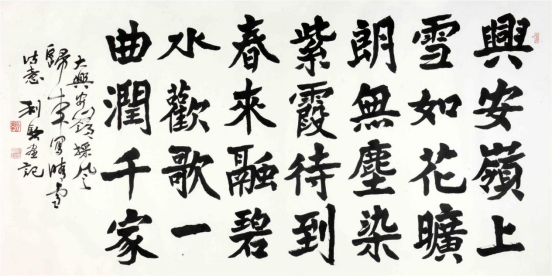 興安嶺上
雪如花曠
朗無塵染
紫霞待到
春來融碧
水歡歌一
曲潤千家
大興安嶺採風
歸來寫晴雪
詩意